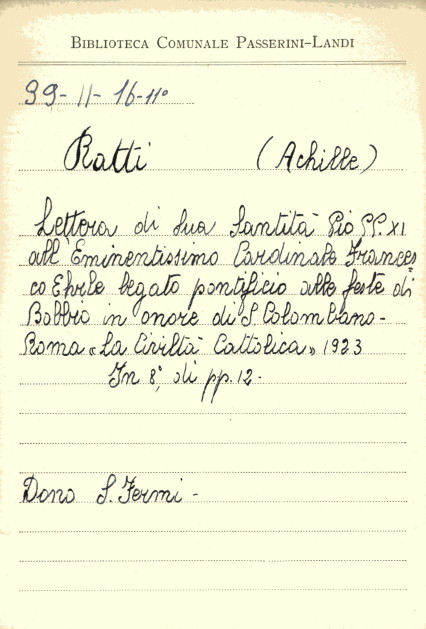 BIBLIOTECA COMUNALE PASSERINI-LANDI
99-11-16-11°
Ratti (Achille)
Lettera di Sua Santità Pio PP. XI
all'Eminentissimo Cardinale Frances
co Ehrle legato pontificio alle feste di
Bobbio in onore di S. Colombano-
Roma «La Civiltà Cattolica» 1923
In 8°, di pp. 12.
Dono S. Fermi -